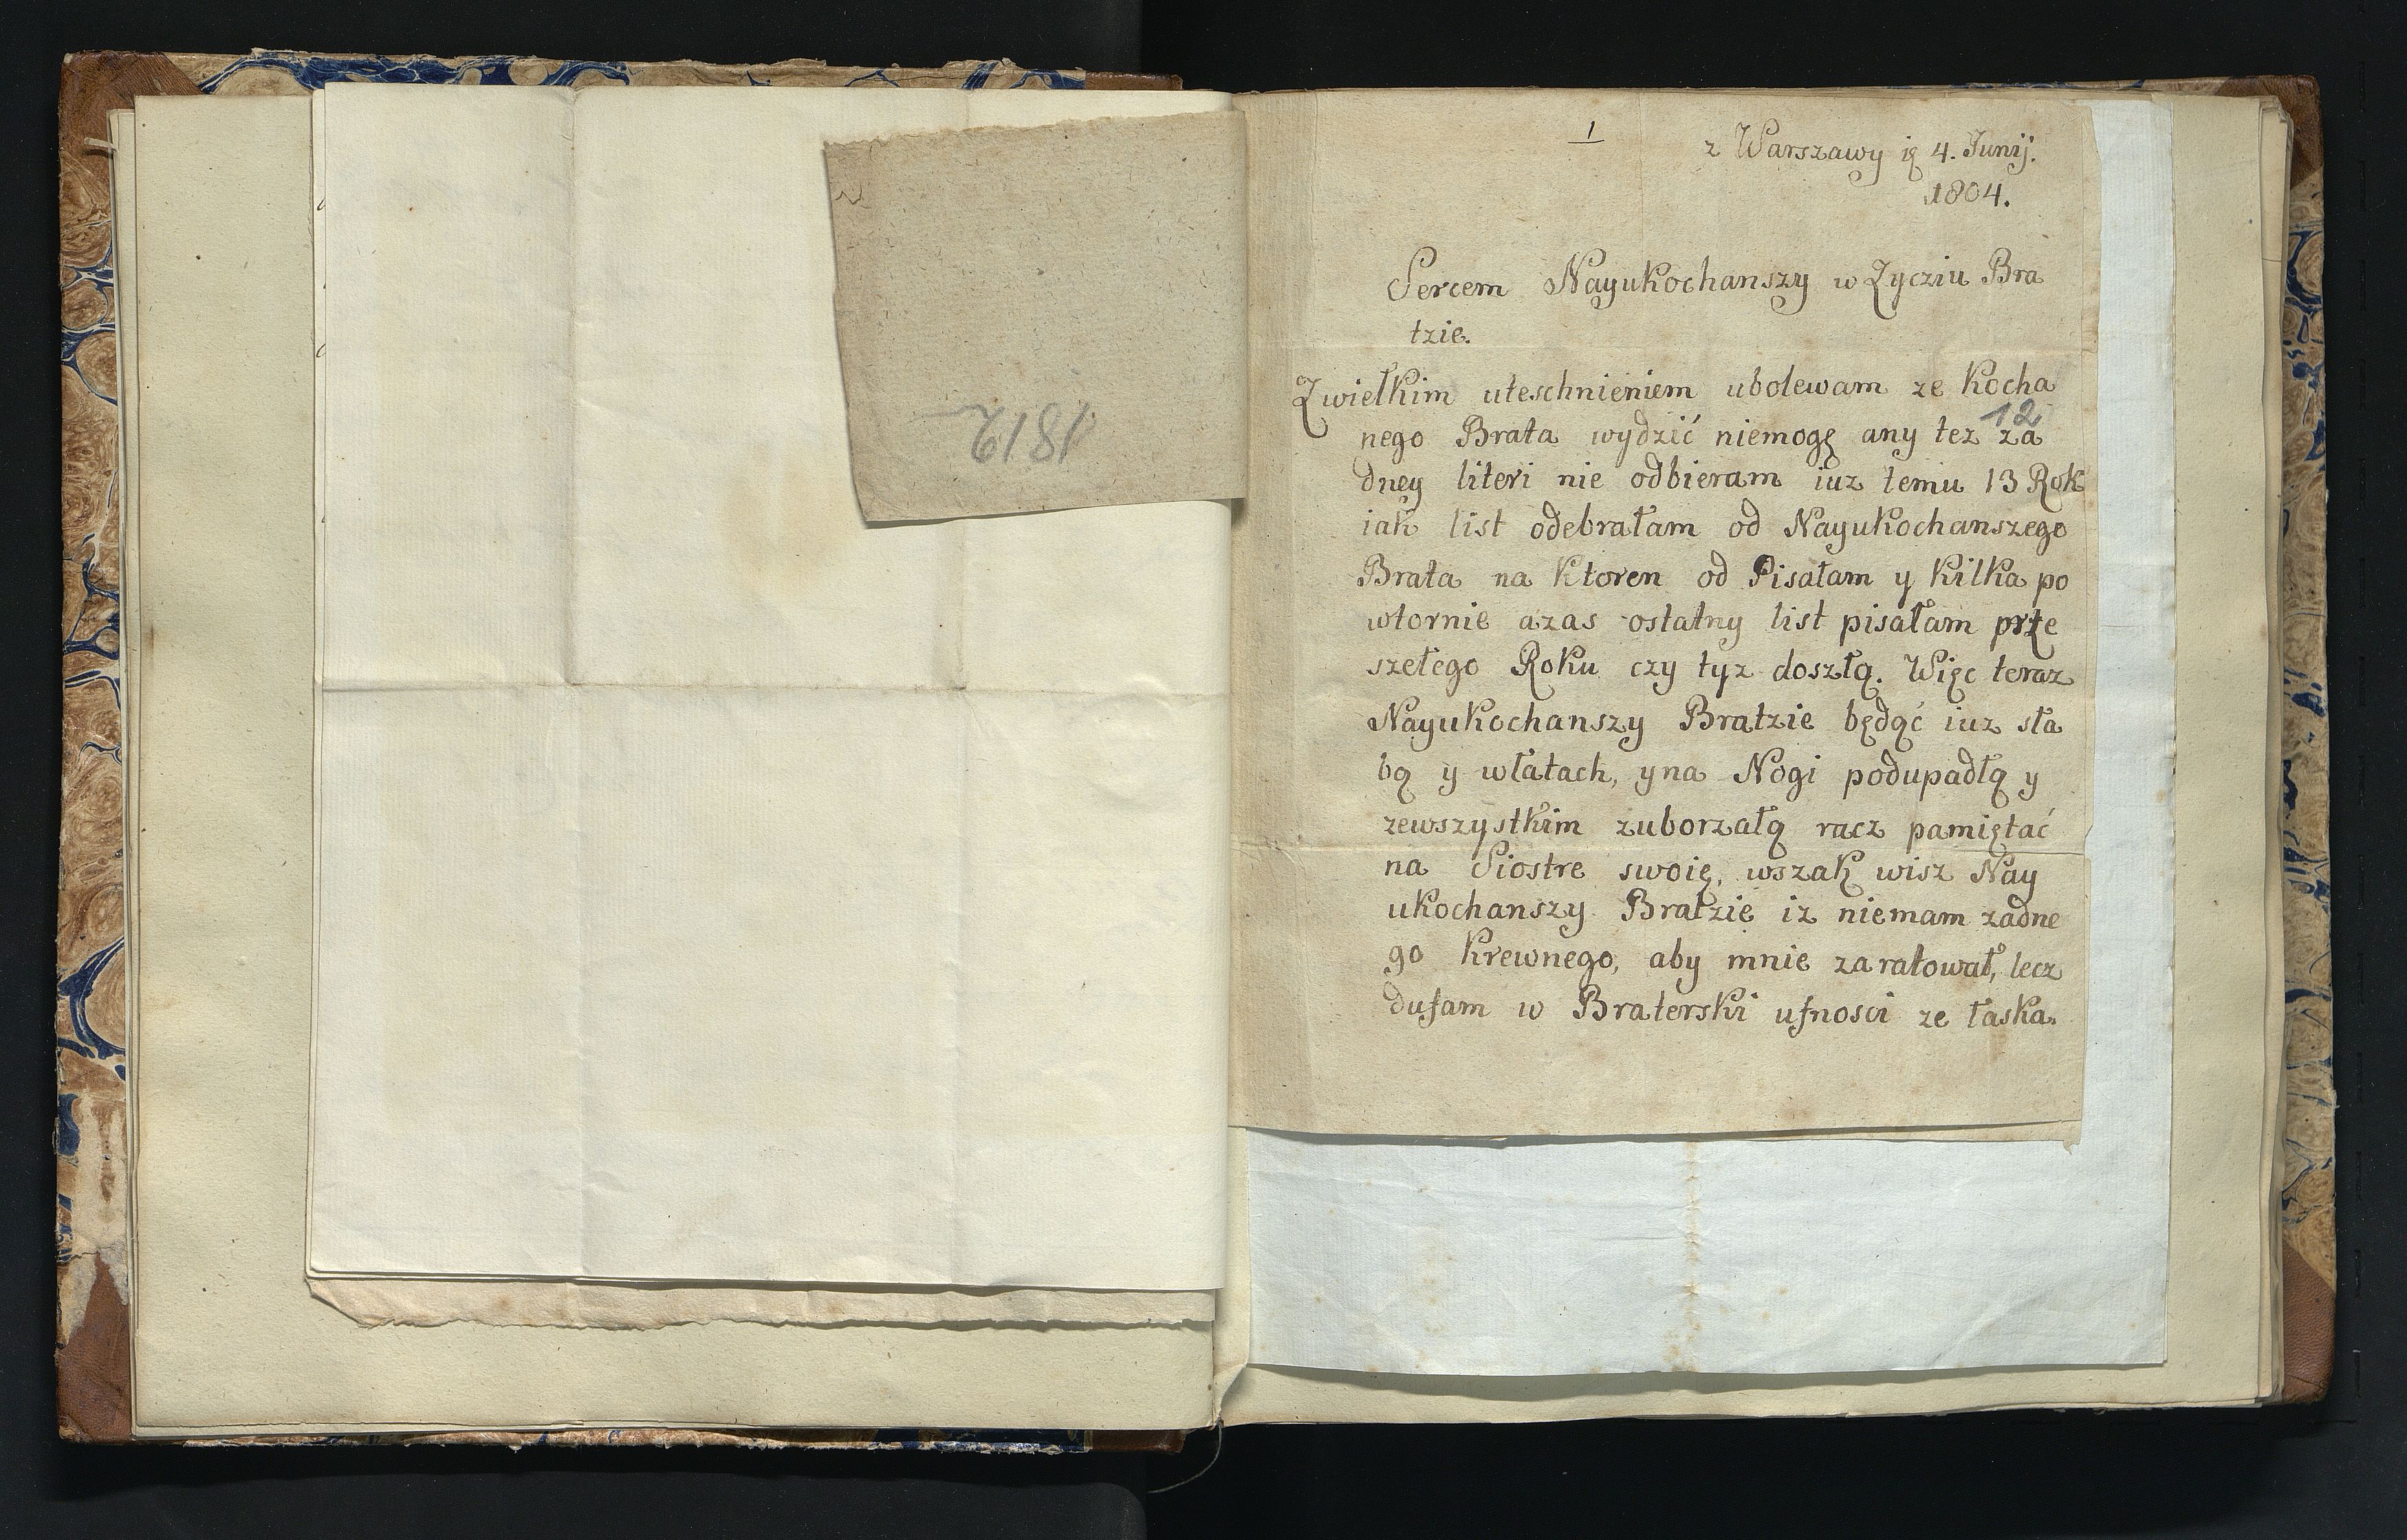 1812
1
z Warszawy ię 4. Junij.
1804.
Sercem Nayukochanszy w Zycziu Bra
tzie.
Zwielkim uteschnieniem ubolewam ze Kocha
12
nego Brata wydzić niemogę any tez za
dney literi nie odbieram iuz temu 13 Rok
iak list odebrałam od Nayukochanszego
Brata na Ktoren od Pisałam y Kilka po
wtornie azas ostatny list pisałam prze
szełego Roku czy tyz doszłą. Więc teraz
Nayukochanszy Bratzie będąć iuz sła
bą y włatach, yna Nogi podupadłą y
zewszystkim zuborzałą racz pamiętać
na Siostre swoię, wszak wisz Nay
ukochanszy Bratzie iz niemam zadne
go Krewnego, aby mnie zaratował, lecz
dufam w Braterski ufnosci ze łaska.